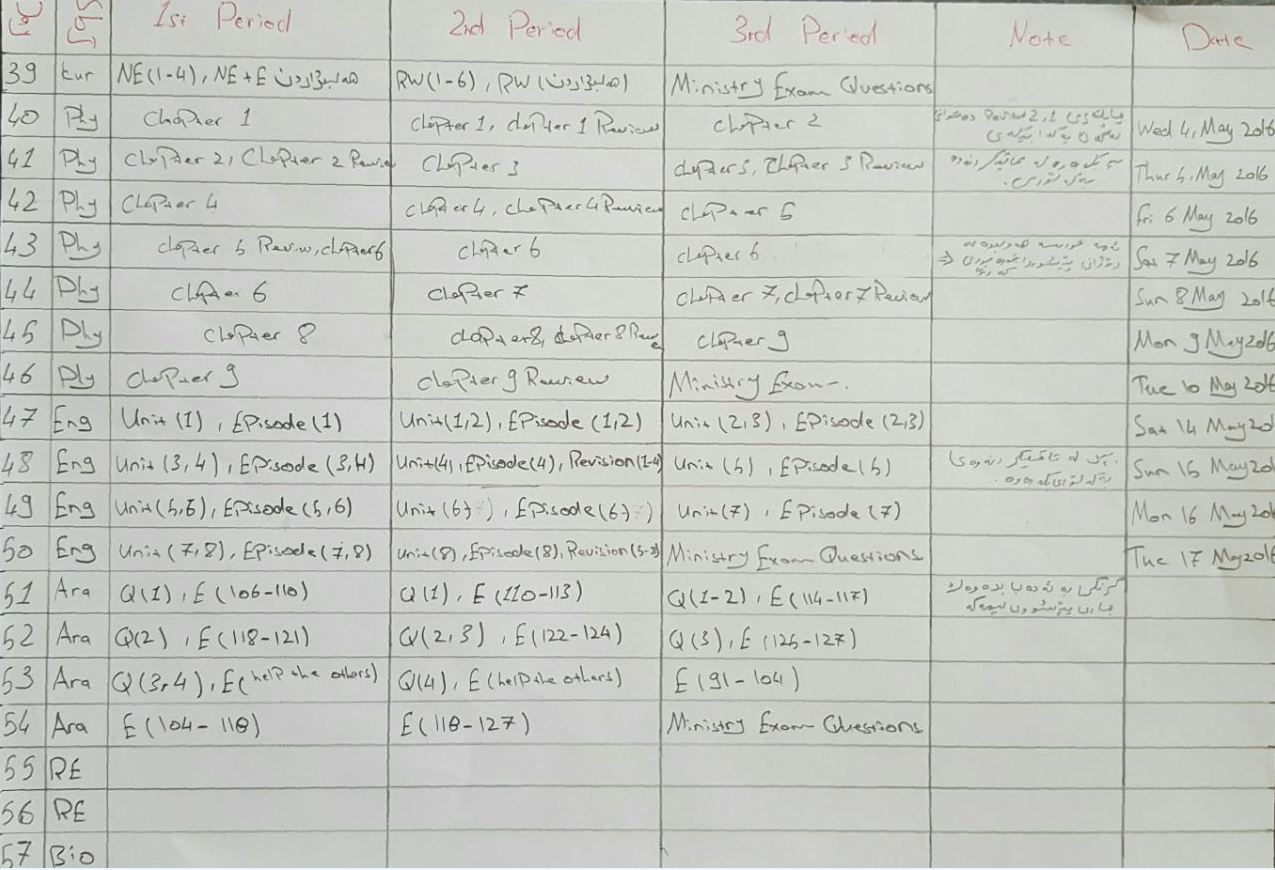 1st Period 2nd Period 3rd Period Note Date
39 Kur NE(1-4), NE+E هەڵبژاردن RW(1-6), RW (هەڵبژاردن) Ministry Exam Questions
40 Phy Chapter 1 chapter 1, chapter 1 Review chapter 2 Wed 4, May 2016
41 Phy Chapter 2, Chapter 2 Review Chapter 3 chapter 3, Chapter 3 Review Thur 5, May 2016
42 Phy Chapter 4 chapter 4, chapter 4 Review chapter 5 Fri 6 May 2016
43 Phy chapter 5 Review, chapter 6 chapter 6 chapter 6 Sat 7 May 2016
44 Phy Chapter 6 chapter 7 chapter 7, chapter 7 Review Sun 8 May 2016
45 Phy chapter 8 chapter 8, chapter 8 Review chapter 9 Mon 9 May 2016
46 Phy chapter 9 chapter 9 Review Ministry Exam. Tue 10 May 2016
47 Eng Unit (1), Episode (1) Unit(1,2), Episode (1,2) Unit (2,3), Episode (2,3) Sat 14 May 20
48 Eng Unit (3,4), Episode (3,4) Unit(4), Episode(4), Revision(1-4) Unit (5), Episode (5) Sun 15 May 20
49 Eng Unit (5,6), Episode (5,6) Unit (6), Episode (6) Unit (7), Episode (7) Mon 16 May 20
50 Eng Unit (7,8), Episode (7,8) Unit(8), Episode(8), Revision(5-8) Ministry Exam Questions Tue 17 May 2016
51 Ara Q(1), E (106-110) Q(1), E (110-113) Q(1-2), E (114-117)
52 Ara Q(2), E (118-121) Q(2,3), E(122-124) Q(3), E (125-127)
53 Ara Q(3,4), E(help the others) Q(4), E (help the others) E (91-104)
54 Ara E (104-118) E (118-127) Ministry Exam Questions
55 RE
56 RE
57 Bio